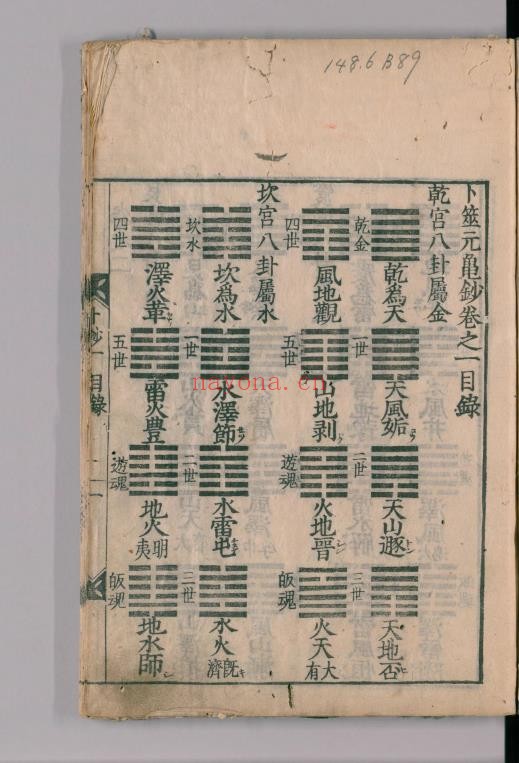 148.6 B89
卜筮元亀鈔卷之一目錄
乾宮八卦屬金
乾爲天 天風姤 天山遯 天地否
乾金 一世 二世 三世
風地觀 山地剥 火地晉 火天大有
四世 五世 遊魂 皈魂
坎宮八卦屬水
坎爲水 水澤節 水雷屯 水火既濟
坎水 一世 二世 三世
澤火革 雷火豐 地火明夷 地水師
四世 五世 遊魂 皈魂
卜抄一 目錄
nayona.cn